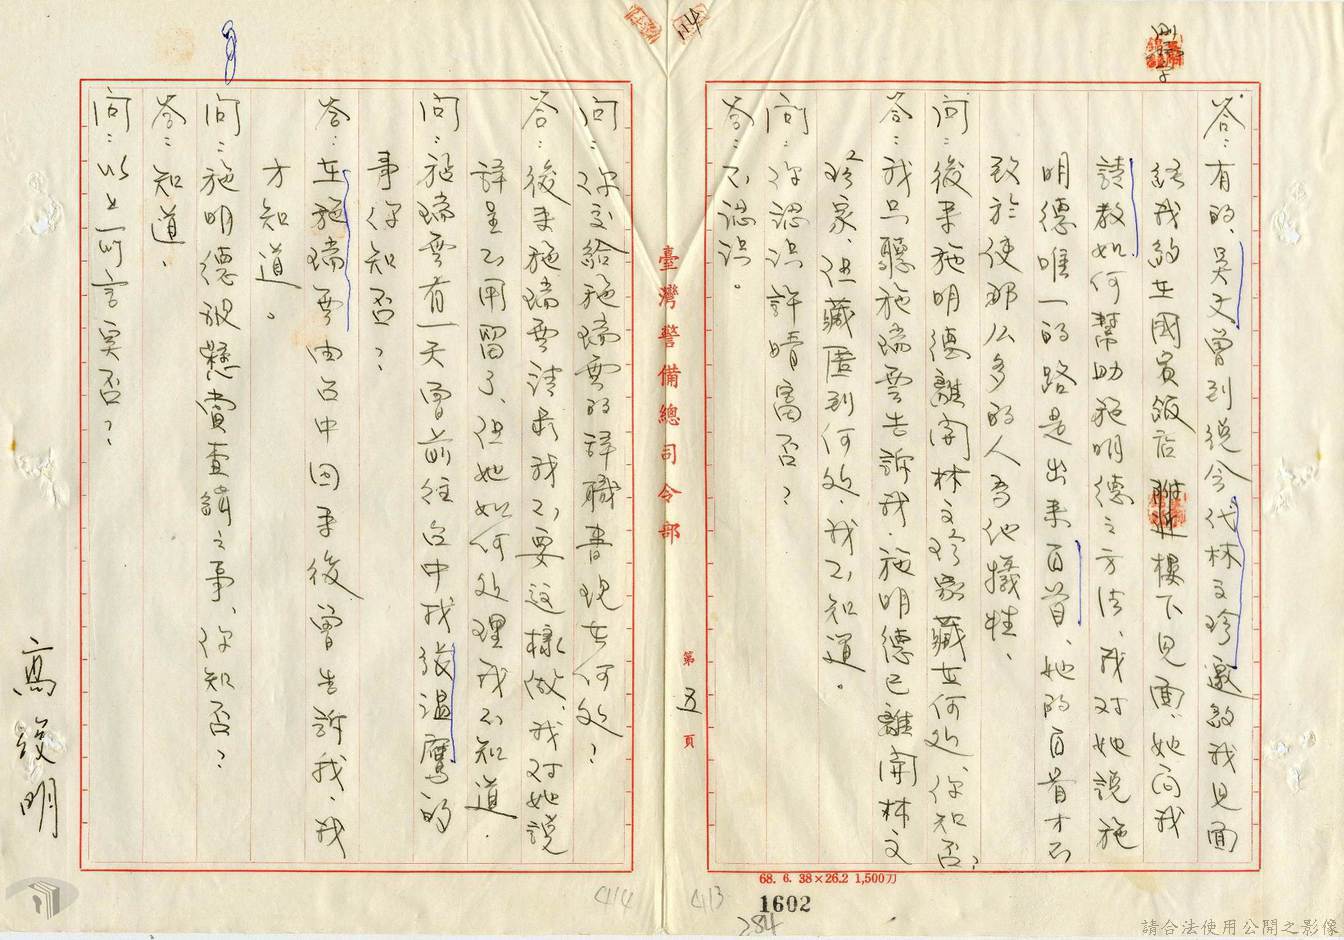 答：有的，吳文曾到總會代林文珍邀約我見面
結我約在國賓飯店附近樓下見面，她向我
請教如何幫助施明德之方法、我对她説施
明德唯一的路是出来自首、她的自首才不
致於使那么多的人为他犧牲、
問：後来施明德離開林文珍家藏在何处、你知否？
答：我只聽施瑞雲告訴我．施明德已離開林文
珍家、但藏匿到何处、我不知道。
問：你認识許晴富否？
答：不認识。
臺灣警備總司令部
第五頁
問：你交給施瑞雲的辞職書現在何处？
答：後来施瑞雲請求我不要这樣做、我对她説
辞呈不用留了、但她如何处理我不知道．
問：施瑞雲有一天曾前往台中找張温鷹的
事你知否？
答：在施瑞雲由台中回来後曾告訴我、我
才知道。
問：施明德被懸賞查緝之事、你知否？
答：知道、
問：以上所言実否？
高俊明
68. 6. 38×26.2 1,500刀
1602
284
413
414
請合法使用公開之影像